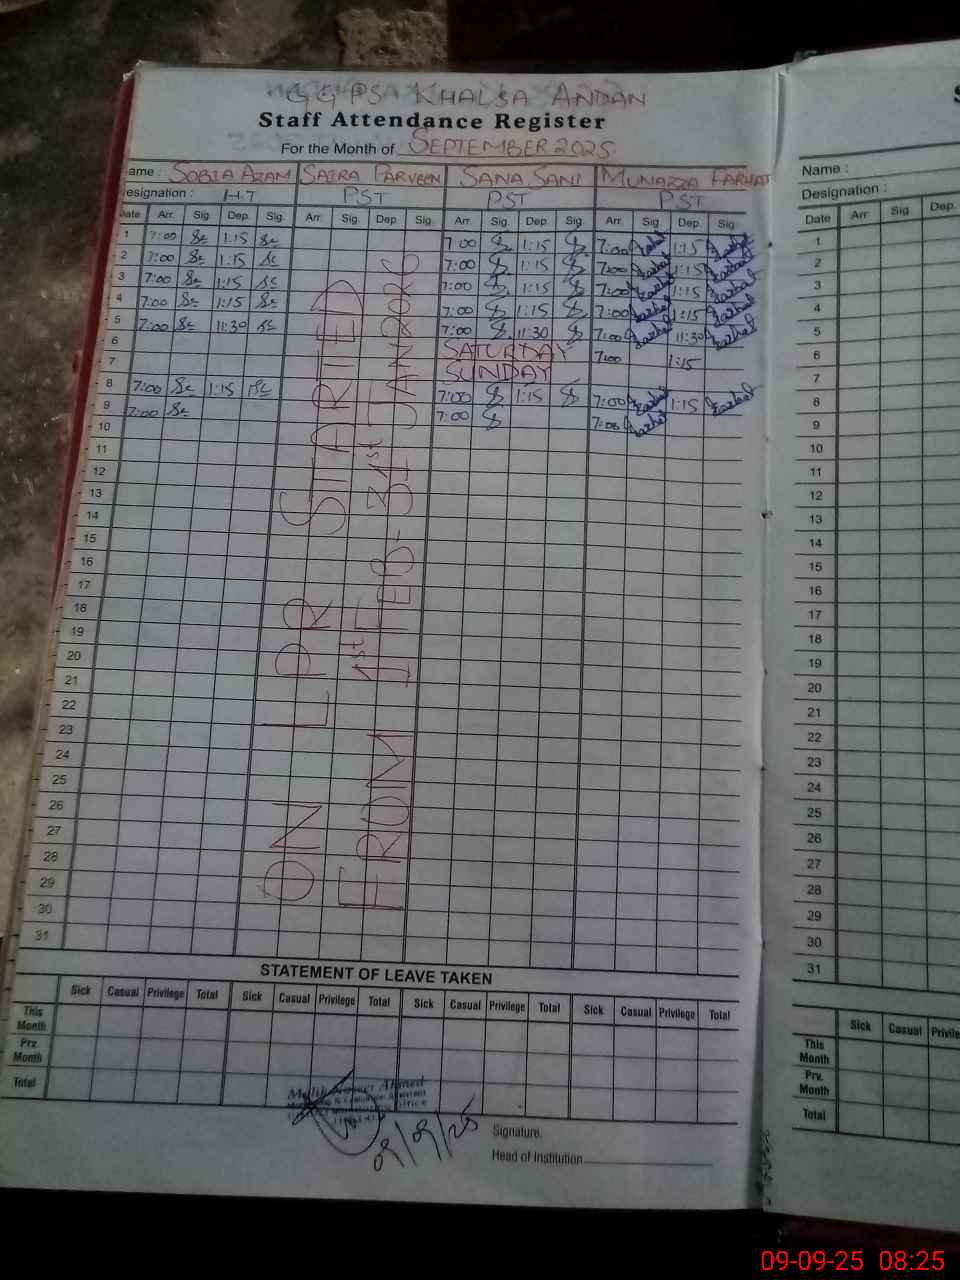 GGPS KHALSA ANDAN
Staff Attendance Register
For the Month of SEPTEMBER 2025
ame : SOBIA AZAM SAIRA PARVEEN SANA SANI MUNAZZA FARHAT
esignation : H.T PST PST PST
Date Arr. Sig. Dep. Sig. Arr. Sig. Dep. Sig. Arr. Sig. Dep. Sig. Arr. Sig. Dep. Sig.
1 7:00 1:15 7 00 1:15 7:00 1:15
2 7:00 1:15 7:00 1:15 7:00 1:15
3 7:00 1:15 7:00 1:15 7:00 1:15
4 7:00 1:15 7:00 1:15 7:00 1:15
5 7:00 11:30 7:00 11:30 7:00 11:30
6 SATURDAY 7:00 1:15
7 SUNDAY
8 7:00 1:15 7:00 1:15 7:00 1:15
9 7:00 7:00 7:00
10
11
12
13
14
15
16
17
18
19
20
21
22
23
24
25
26
27
28
29
30
31
ON LPR STARTED
FROM 1st FEB - 31st JAN
STATEMENT OF LEAVE TAKEN
Sick Casual Privilege Total Sick Casual Privilege Total Sick Casual Privilege Total Sick Casual Privilege Total
This Month
Prv. Month
Total
09/09/25
Signature.
Head of Institution
S
Name :
Designation :
Date Arr. Sig. Dep.
1
2
3
4
5
6
7
8
9
10
11
12
13
14
15
16
17
18
19
20
21
22
23
24
25
26
27
28
29
30
31
Sick Casual Privile
This Month
Prv. Month
Total
09-09-25 08:25